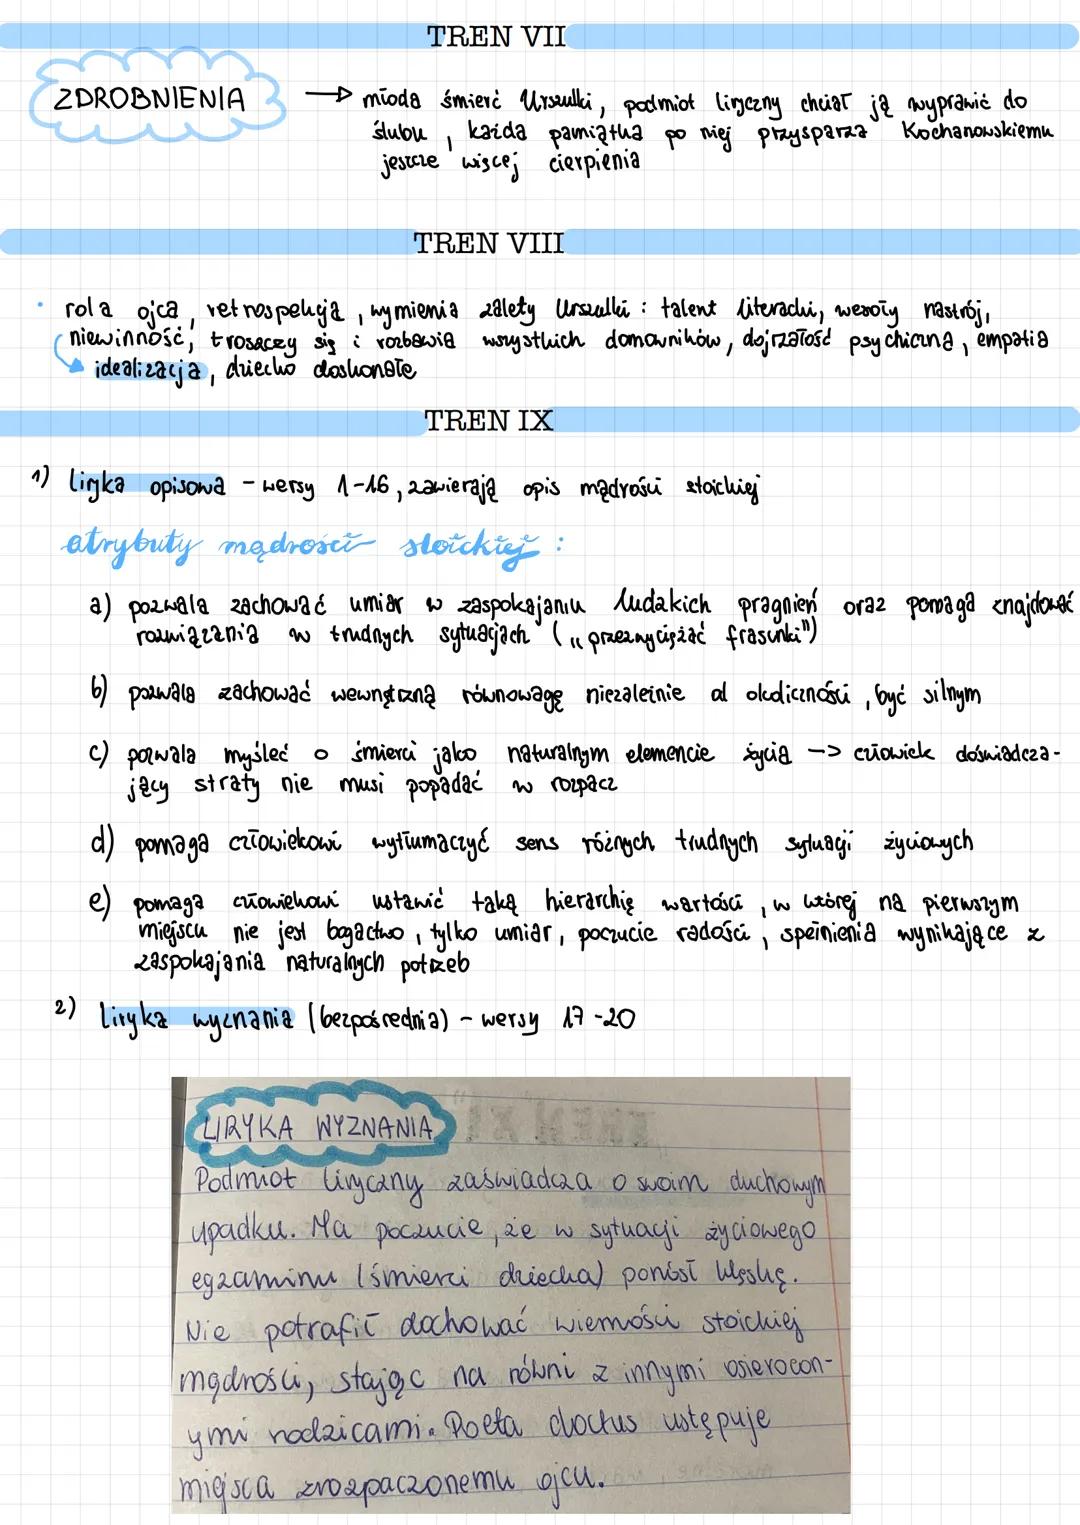 TREN VII
ZDROBNIENIA
→ młoda śmierć Urszulki, podmiot liryczny chciał ją wyprawić do
ślubu, każda pamiątka po niej przysparza Kochanowskiemu
jeszcze więcej cierpienia
TREN VIII
• rola ojca, retrospekcja, wymienia zalety Urszulki: talent literacki, wesoły nastrój,
niewinność, troszczy się i rozbawia wszystkich domowników, dojrzałość psychiczna, empatia
idealizacja, dziecko doskonałe
TREN IX
1) liryka opisowa - wersy 1-16, zawierają opis mądrości stoickiej
atrybuty mądrości stoickiej:
a) pozwala zachować umiar w zaspokajaniu ludzkich pragnień oraz pomaga znajdować
rozwiązania w trudnych sytuacjach ("przezwyciężać frasunki")
b) pozwala zachować wewnętrzną równowagę niezależnie od okoliczności, być silnym
c) pozwala myśleć o śmierci jako naturalnym elemencie życia -> człowiek doświadcza-
jący straty nie musi popadać w rozpacz
d) pomaga człowiekowi wytłumaczyć sens różnych trudnych sytuacji życiowych
e) pomaga człowiekowi ustawić taką hierarchię wartości, w której na pierwszym
miejscu nie jest bogactwo, tylko umiar, poczucie radości, spełnienia wynikające z
zaspokajania naturalnych potrzeb
2) liryka wyznania (bezpośrednia) - wersy 17-20
LIRYKA WYZNANIA
Podmiot liryczny zaświadcza o swoim duchowym
upadku. Ma poczucie, że w sytuacji życiowego
egzaminu (śmierci dziecka) poniósł klęskę.
Nie potrafił dochować wierności stoickiej
mądrości, stając na równi z innymi osierocon-
ymi rodzicami. Poeta doctus ustępuje
miejsca zrozpaczonemu ojcu.